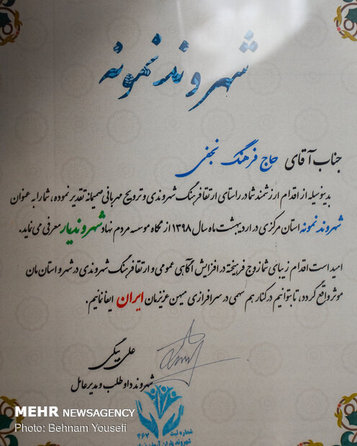 شهروند نمونه
جناب آقای حاج فرهنگ نجفی
بدینوسیله از اقدام ارزشمند شما در راستای ارتقا فرهنگ شهروندی و ترویج مهربانی صمیمانه تقدیر نموده، شما را به عنوان
شهروند نمونه استان مرکزی در اردیبهشت ماه سال ۱۳۹۸ از نگاه موسسه مردم نهاد شهروندیار معرفی می نماید.
امید است اقدام زیبای شما زوج فرهیخته در افزایش آگاهی عمومی و ارتقا فرهنگ شهروندی در شهر و استان مان
موثر واقع گردد، تا بتوانیم در کنار هم سهمی در سرافرازی میهن عزیزمان ایران ایفا نماییم.
علی بیگی
شهروند داوطلب و مدیرعامل
شماره ثبت
۲۶۷
MEHR NEWSAGENCY
Photo: Behnam Yousefi